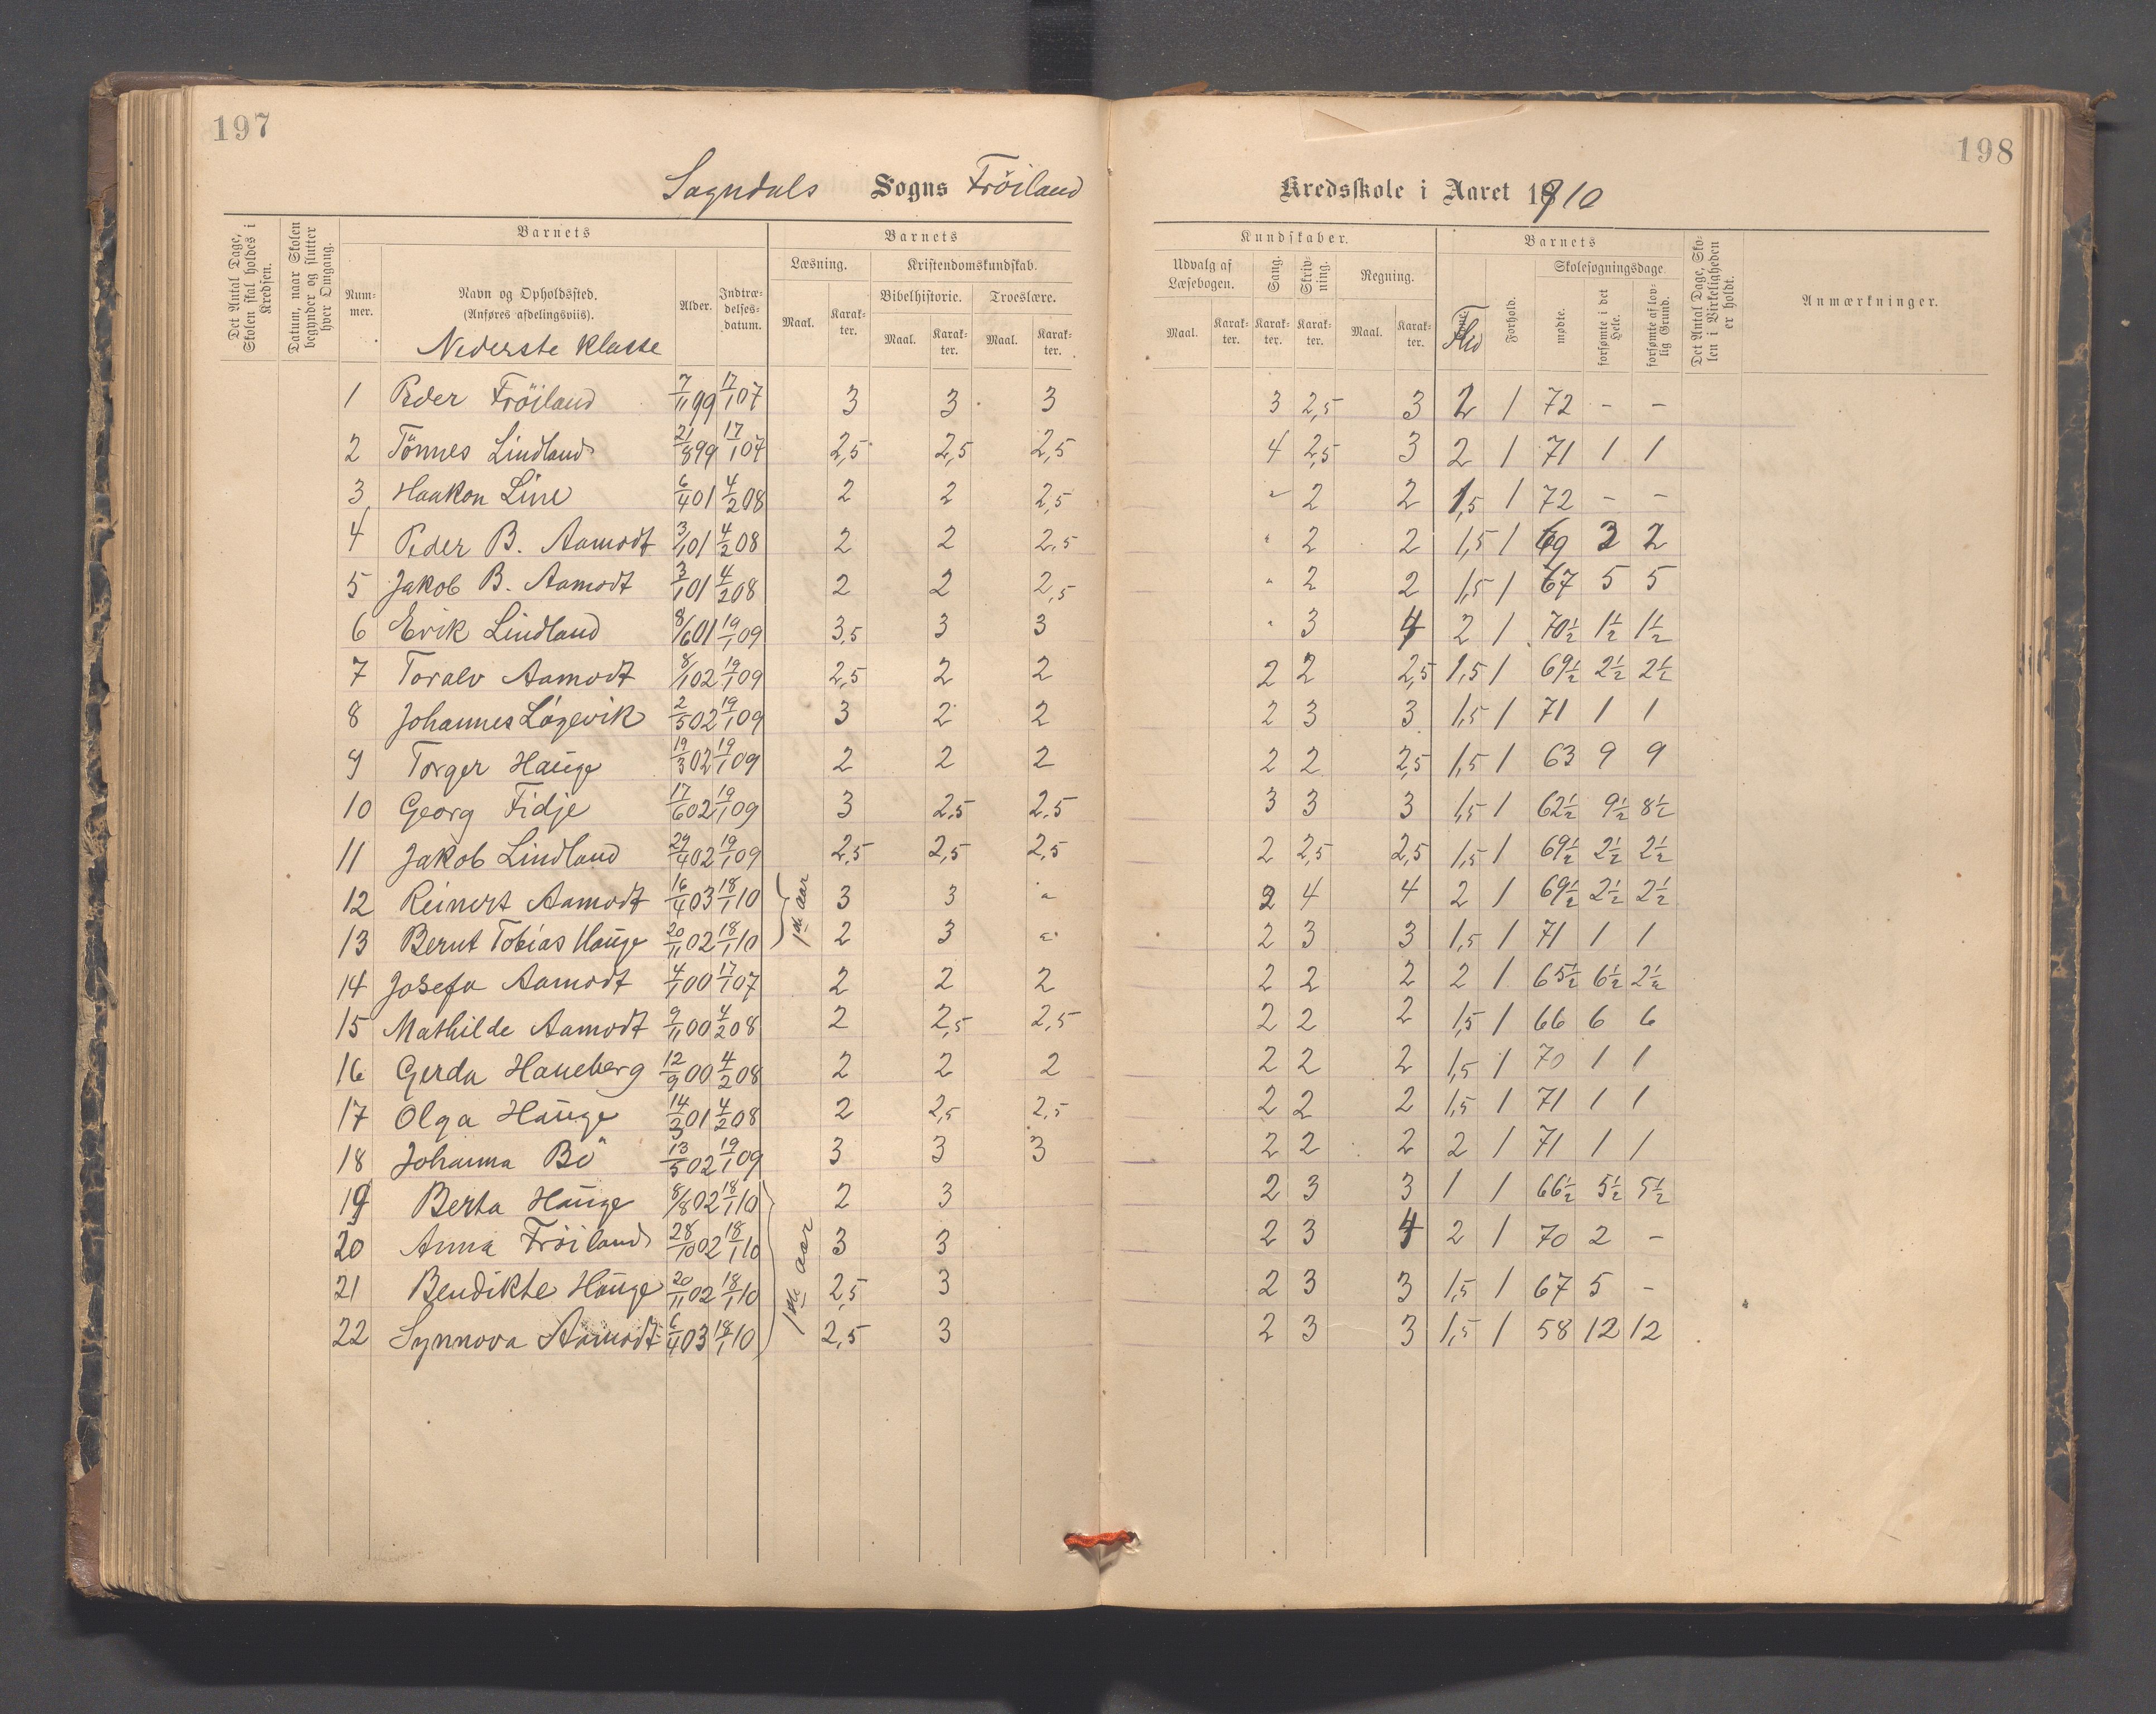 197
198
Sogndals Sogns Fröiland
Kredsskole i Aaret 1910
Det Antal Dage, Skolen skal holdes i Kredsen.
Datum, naar Skolen begynder og slutter hver Omgang.
Barnets
Num-mer.
Navn og Opholdssted.
(Anføres afdelingsviis).
Nederste Klasse
Alder.
Indtræ-delses-datum.
Barnets
Læsning.
Kristendomskundskab.
Bibelhistorie.
Troeslære.
Maal. Karak-ter. Maal. Karak-ter. Maal. Karak-ter.
Kundskaber.
Udvalg af Læsebogen.
Sang.
Skriv-ning.
Regning.
Maal. Karak-ter. Karak-ter. Karak-ter. Maal. Karak-ter.
Barnets
Flid
Forhold.
Skolesøgningsdage.
mødte.
forsømte i det Hele.
forsømte af lov-lig Grund.
Det Antal Dage, Sko-len i Virkeligheden er holdt.
Anmærkninger.
1 Peder Fröiland 7/11 99 17/1 07 3 3 3 3 2,5 3 2 1 72 - -
2 Tönnes Lindland 21/8 99 17/1 07 2,5 2,5 2,5 4 2,5 3 2 1 71 1 1
3 Haakon Line 6/4 01 4/2 08 2 2 2,5 " 2 2 1,5 1 72 - -
4 Peder B. Aamodt 3/1 01 4/2 08 2 2 2,5 " 2 2 1,5 1 69 3 2
5 Jakob B. Aamodt 3/1 01 4/2 08 2 2 2,5 " 2 2 1,5 1 67 5 5
6 Erik Lindland 8/6 01 19/1 09 3,5 3 3 " 3 4 2 1 70½ 1½ 1½
7 Toralv Aamodt 8/1 02 19/1 09 2,5 2 2 2 2 2,5 1,5 1 69½ 2½ 2½
8 Johannes Lögevik 2/5 02 19/1 09 3 2 2 2 3 3 1,5 1 71 1 1
9 Torger Hauge 19/3 02 19/1 09 2 2 2 2 2 2,5 1,5 1 63 9 9
10 Georg Fidje 17/6 02 19/1 09 3 2,5 2,5 3 3 3 1,5 1 62½ 9½ 8½
11 Jakob Lindland 29/4 02 19/1 09 2,5 2,5 2,5 2 2,5 2,5 1,5 1 69½ 2½ 2½
12 Reinert Aamodt 16/4 03 18/1 10 1ste aar 3 3 " 2 4 4 2 1 69½ 2½ 2½
13 Bernt Tobias Hauge 20/11 02 18/1 10 2 3 " 2 3 3 1,5 1 71 1 1
14 Josefa Aamodt 4/1 00 17/1 07 2 2 2 2 2 2 2 1 65½ 6½ 2½
15 Mathilde Aamodt 9/11 00 4/2 08 2 2,5 2,5 2 2 2 1,5 1 66 6 6
16 Gerda Haneberg 12/9 00 4/2 08 2 2 2 2 2 2 1,5 1 70 1 1
17 Olga Hauge 14/3 01 4/2 08 2 2,5 2,5 2 2 2 1,5 1 71 1 1
18 Johanna Bö 13/5 02 19/1 09 3 3 3 2 2 2 2 1 71 1 1
19 Berta Hauge 8/8 02 18/1 10 2 3 2 3 3 1 1 66½ 5½ 5½
20 Anna Fröiland 28/10 02 18/1 10 1ste aar 3 3 2 3 4 2 1 70 2 -
21 Bendikte Hauge 20/11 02 18/1 10 2,5 3 2 3 3 1,5 1 67 5 -
22 Synnova Aamodt 6/4 03 18/1 10 2,5 3 2 3 3 1,5 1 58 12 12